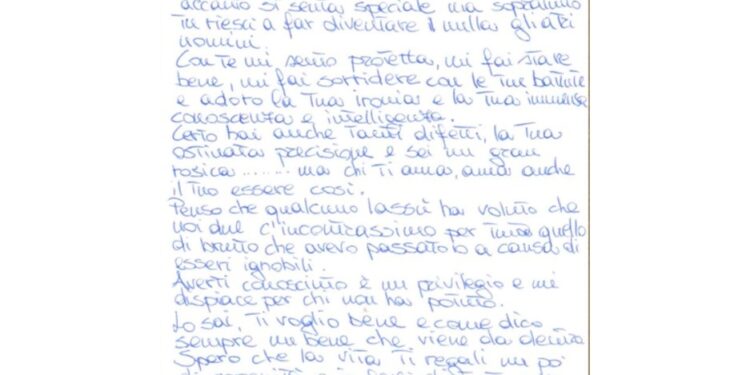 accanto si senta speciale ma soprattutto
tu riesci a far diventare il nulla gli altri
uomini.
Con te mi sento protetta, mi fai stare
bene, mi fai sorridere con le tue battute
e adoro la Tua ironia e la Tua immensa
conoscenza e intelligenza.
Certo hai anche Tanti difetti, la Tua
ostinata precisione e sei un gran
rosica ........ ma chi Ti ama, ama anche
il Tuo essere così.
Penso che qualcuno lassù ha voluto che
noi due c'incontrassimo per tutto quello
di brutto che avevo passato io a causa di
esseri ignobili.
Averti conosciuto è un privilegio e mi
dispiace per chi non ha potuto.
Lo sai, Ti voglio bene e come dico
sempre un bene che viene da dentro
Spero che la vita Ti regali un po'
di